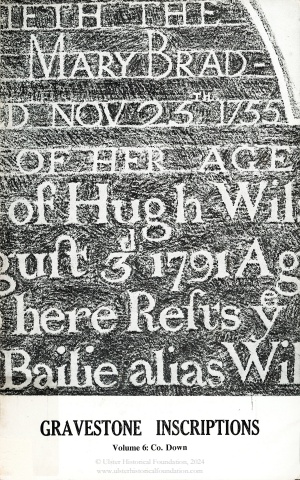 IETH THE
MARY BRAD-
D NOV 25TH 1755
OF HER AGE
of Hugh Wil
guſt 3d 1791 Ag
here Reſts ye
Bailie alias Wil
GRAVESTONE INSCRIPTIONS
Volume 6: Co. Down
© Ulster Historical Foundation, 2024
www.ulsterhistoricalfoundation.com